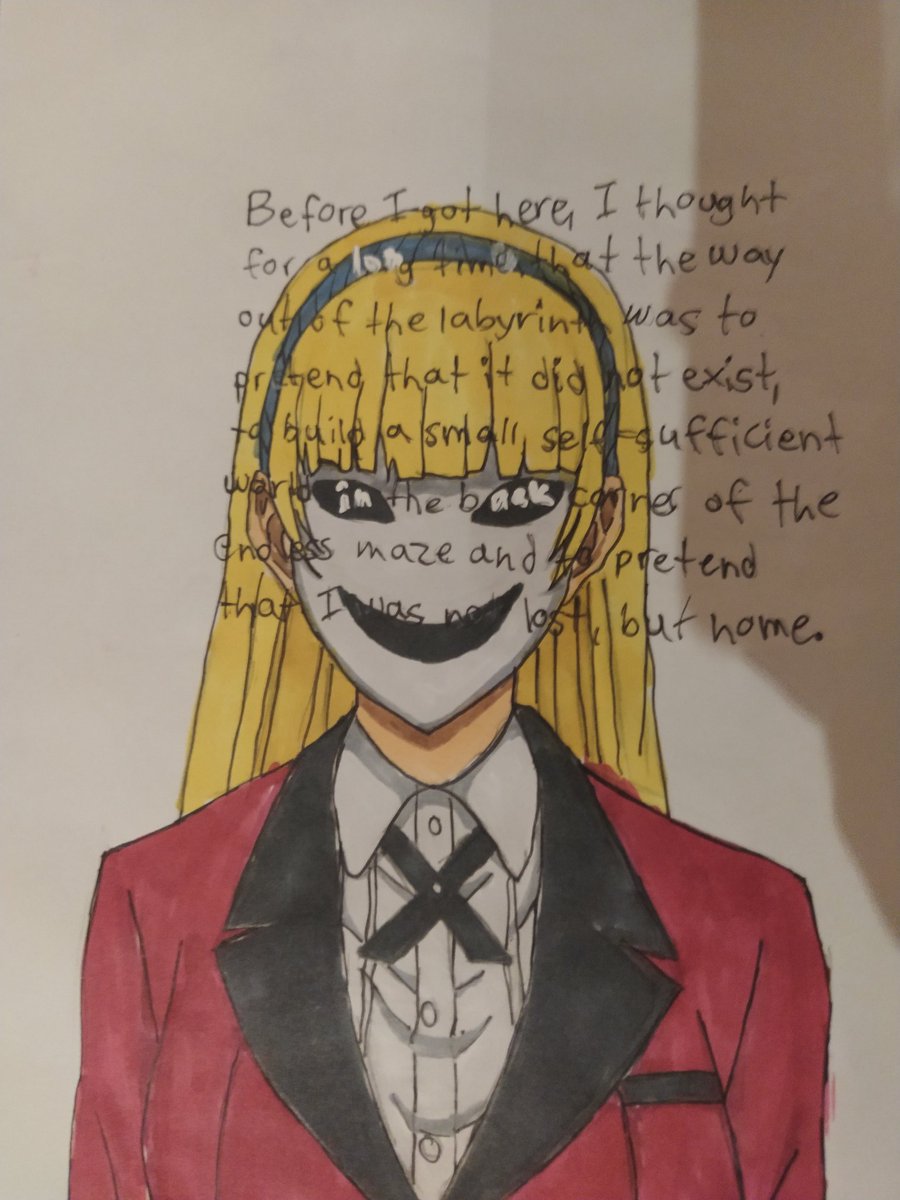 Before I got here, I thought
for a long time that the way
out of the labyrinth was to
pretend that it did not exist,
to build a small, self-sufficient
world in the back corner of the
endless maze and to pretend
that I was not lost, but home.